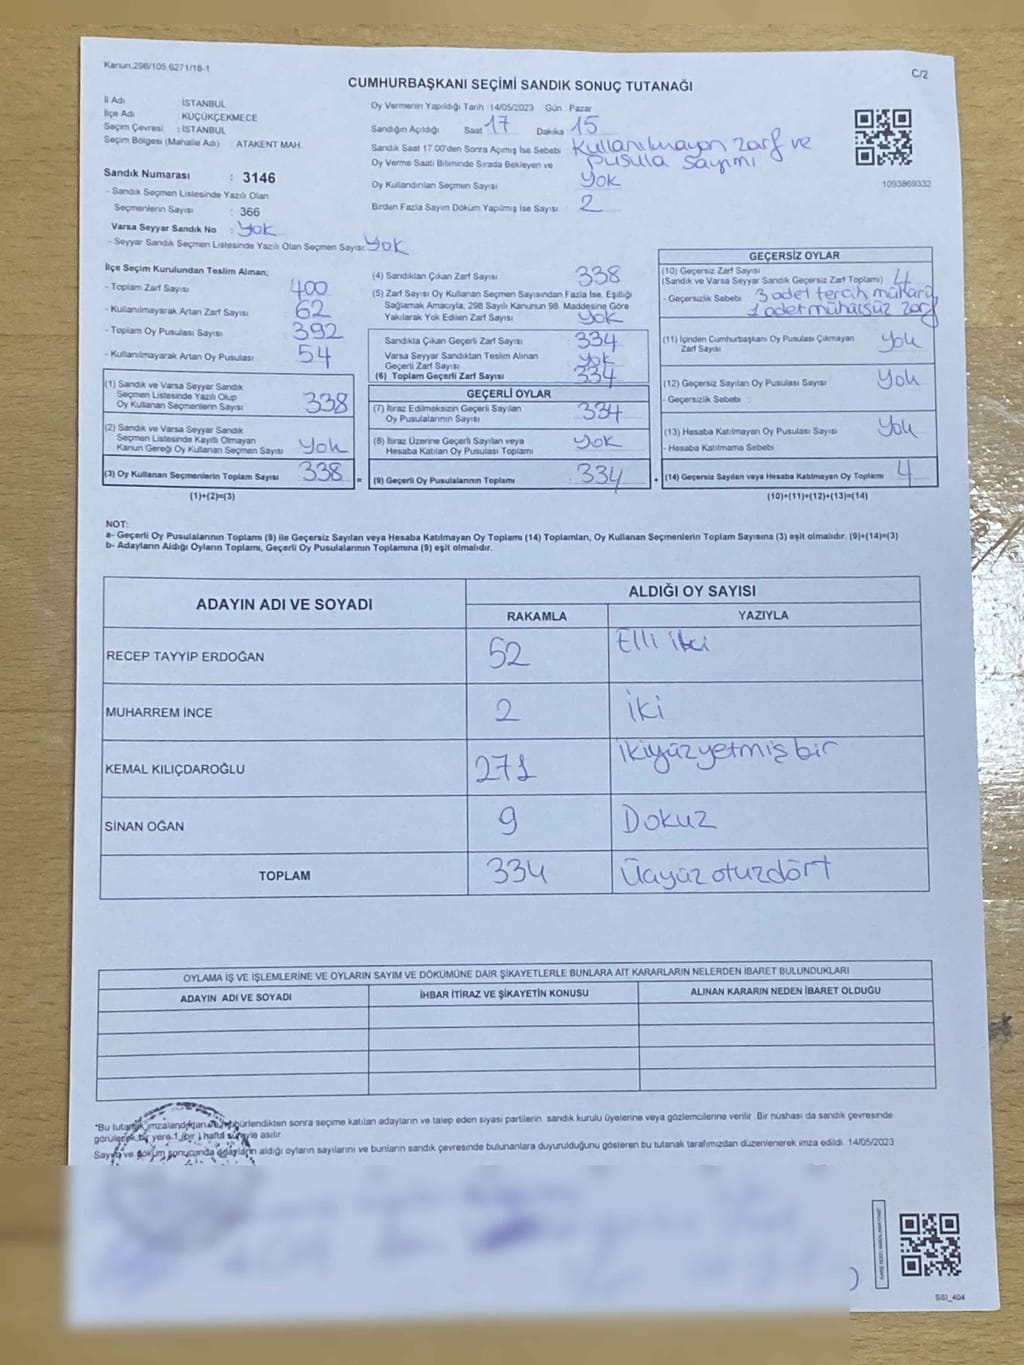 Kanun.298/105,6271/18-1
C/2
CUMHURBAŞKANI SEÇİMİ SANDIK SONUÇ TUTANAĞI
İl Adı İSTANBUL
İlçe Adı KÜÇÜKÇEKMECE
Seçim Çevresi : İSTANBUL
Seçim Bölgesi (Mahalle Adı) ATAKENT MAH.
Sandık Numarası : 3146
- Sandık Seçmen Listesinde Yazılı Olan
Seçmenlerin Sayısı : 366
Varsa Seyyar Sandık No : Yok
- Seyyar Sandık Seçmen Listesinde Yazılı Olan Seçmen Sayısı Yok
Oy Vermenin Yapıldığı Tarih :14/05/2023 Gün : Pazar
Sandığın Açıldığı Saat 17 Dakika 15
Sandık Saat 17.00'den Sonra Açmış İse Sebebi Kullanılmayan zarf ve
Oy Verme Saati Bitiminde Sırada Bekleyen ve pusula sayımı
Oy Kullandırılan Seçmen Sayısı Yok
Birden Fazla Sayım Döküm Yapılmış İse Sayısı 2
1093869332
İlçe Seçim Kurulundan Teslim Alınan;
- Toplam Zarf Sayısı 400
- Kullanılmayarak Artan Zarf Sayısı 62
- Toplam Oy Pusulası Sayısı 392
- Kullanılmayarak Artan Oy Pusulası 54
(1) Sandık ve Varsa Seyyar Sandık
Seçmen Listesinde Yazılı Olup
Oy Kullanan Seçmenlerin Sayısı 338
(2) Sandık ve Varsa Seyyar Sandık
Seçmen Listesinde Kayıtlı Olmayan
Kanun Gereği Oy Kullanan Seçmen Sayısı Yok
(3) Oy Kullanan Seçmenlerin Toplam Sayısı 338 =
(1)+(2)=(3)
(4) Sandıktan Çıkan Zarf Sayısı 338
(5) Zarf Sayısı Oy Kullanan Seçmen Sayısından Fazla İse, Eşitliği
Sağlamak Amacıyla, 298 Sayılı Kanunun 98. Maddesine Göre
Yakılarak Yok Edilen Zarf Sayısı Yok
Sandıkta Çıkan Geçerli Zarf Sayısı 334
Varsa Seyyar Sandıktan Teslim Alınan
Geçerli Zarf Sayısı Yok
(6) Toplam Geçerli Zarf Sayısı 334
GEÇERLİ OYLAR
(7) İtiraz Edilmeksizin Geçerli Sayılan
Oy Pusulalarının Sayısı 334
(8) İtiraz Üzerine Geçerli Sayılan veya
Hesaba Katılan Oy Pusulası Toplamı Yok
(9) Geçerli Oy Pusulalarının Toplamı 334 +
GEÇERSİZ OYLAR
(10) Geçersiz Zarf Sayısı
(Sandık ve Varsa Seyyar Sandık Geçersiz Zarf Toplamı) 4
- Geçersizlik Sebebi 3 adet tercih mühürü
1 adet mühürsüz zarf
(11) İçinden Cumhurbaşkanı Oy Pusulası Çıkmayan
Zarf Sayısı Yok
(12) Geçersiz Sayılan Oy Pusulası Sayısı Yok
- Geçersizlik Sebebi
(13) Hesaba Katılmayan Oy Pusulası Sayısı Yok
- Hesaba Katılmama Sebebi
(14) Geçersiz Sayılan veya Hesaba Katılmayan Oy Toplamı 4
(10)+(11)+(12)+(13)=(14)
NOT:
a- Geçerli Oy Pusulalarının Toplamı (9) ile Geçersiz Sayılan veya Hesaba Katılmayan Oy Toplamı (14) Toplamları, Oy Kullanan Seçmenlerin Toplam Sayısına (3) eşit olmalıdır. (9)+(14)=(3)
b- Adayların Aldığı Oyların Toplamı, Geçerli Oy Pusulalarının Toplamına (9) eşit olmalıdır.
ADAYIN ADI VE SOYADI ALDIĞI OY SAYISI
RAKAMLA YAZIYLA
RECEP TAYYİP ERDOĞAN 52 Elli iki
MUHARREM İNCE 2 İki
KEMAL KILIÇDAROĞLU 271 İkiyüzyetmişbir
SİNAN OĞAN 9 Dokuz
TOPLAM 334 Üçyüzotuzdört
OYLAMA İŞ VE İŞLEMLERİNE VE OYLARIN SAYIM VE DÖKÜMÜNE DAİR ŞİKAYETLERLE BUNLARA AİT KARARLARIN NELERDEN İBARET BULUNDUKLARI
ADAYIN ADI VE SOYADI İHBAR İTİRAZ VE ŞİKAYETİN KONUSU ALINAN KARARIN NEDEN İBARET OLDUĞU
"Bu tutanak imzalandıktan mühürlendikten sonra seçime katılan adayların ve talep eden siyasi partilerin sandık kurulu üyelerine veya gözlemcilerine verilir. Bir nüshası da sandık çevresinde
görülecek bir yere 1 (bir) hafta süreyle asılır
Sayım ve döküm sonucunda adayların aldığı oyların sayılarını ve bunların sandık çevresinde bulunanlara duyurulduğunu gösteren bu tutanak tarafımızdan düzenlenerek imza edildi. 14/05/2023
SSI_404